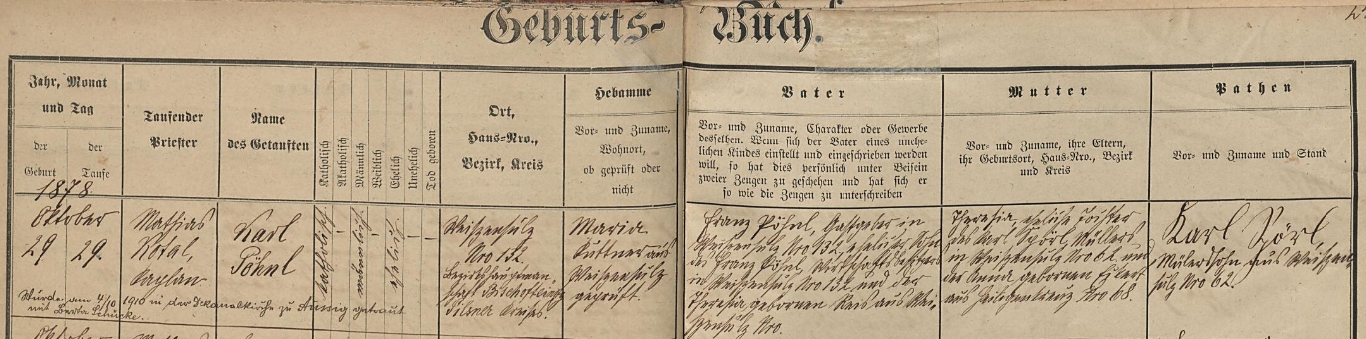 Geburts-Buch.
Jahr, Monat
und Tag
der Geburt
der Taufe
Taufender
Priester
Name
des Getauften
Katholisch
Akatholisch
Männlich
Weiblich
Ehelich
Unehelich
Tod geboren
Ort,
Haus-Nro.,
Bezirk, Kreis
Hebamme
Vor- und Zuname,
Wohnort,
ob geprüft oder
nicht
Vater
Vor- und Zuname, Charakter oder Gewerbe
desselben. Wenn sich der Vater eines unehe-
lichen Kindes einstellt und eingeschrieben werden
will, so hat dies persönlich unter Beisein
zweier Zeugen zu geschehen und hat sich er
so wie die Zeugen zu unterschreiben
Mutter
Vor- und Zuname, ihre Eltern,
ihr Geburtsort, Haus-Nro., Bezirk
und Kreis
Pathen
Vor- und Zuname und Stand
1878
Oktober
29
29.
Mathias
Kaplan
Karl
Pöhnl
katholisch
männlich
ehelich
Weißensulz
Nro 132.
Bezirkshauptmann-
schaft Bischofteinitz
Pilsner Kreises.
Maria
Kuttner aus
Weißensulz
geprüft.
Franz Pöhnl, Gastgeber in
Weißensulz Nro 132, ehelicher Sohn
des Franz Pöhnl, Wirthschaftsbesitzers
in Weißensulz Nro 132 und der
Theresia gebornen aus Wei-
ßensulz Nro.
Theresia, eheliche Tochter
des Karl Spörl, Müllers
in Weißensulz Nro 62 und
der Anna gebornen
aus Heiligenkreuz Nro 68.
Karl Spörl,
Müllersohn aus Weißen-
sulz Nro 62.
Wurde am 4/10 1905 in der Dekanalkirche zu Aussig getraut
mit Berta Schücke.
Oktober